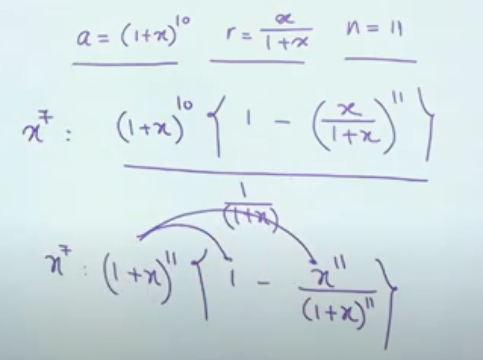 a = (1+x)^10 r = x/(1+x) n = 11
x^7 : (1+x)^10 { 1 - (x/(1+x))^11 }
1/(1+x)
x^7 : (1+x)^11 { 1 - x^11/(1+x)^11 }